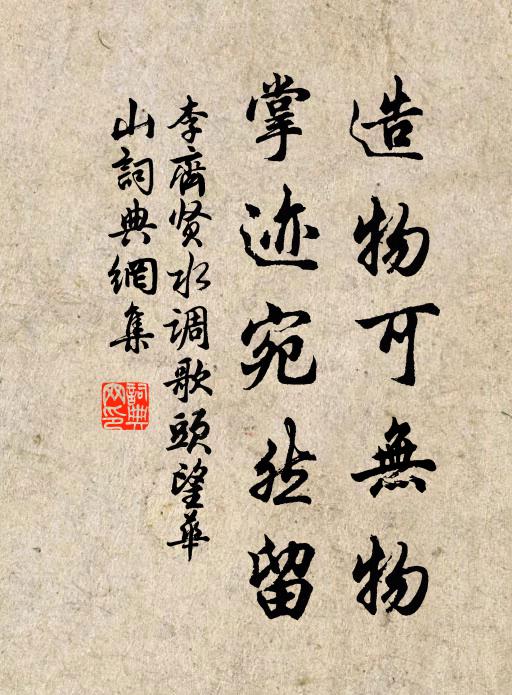 造物可無物
掌迹宛然留
李齊贤水调歌頭望華
山詞典網集
詞典網印